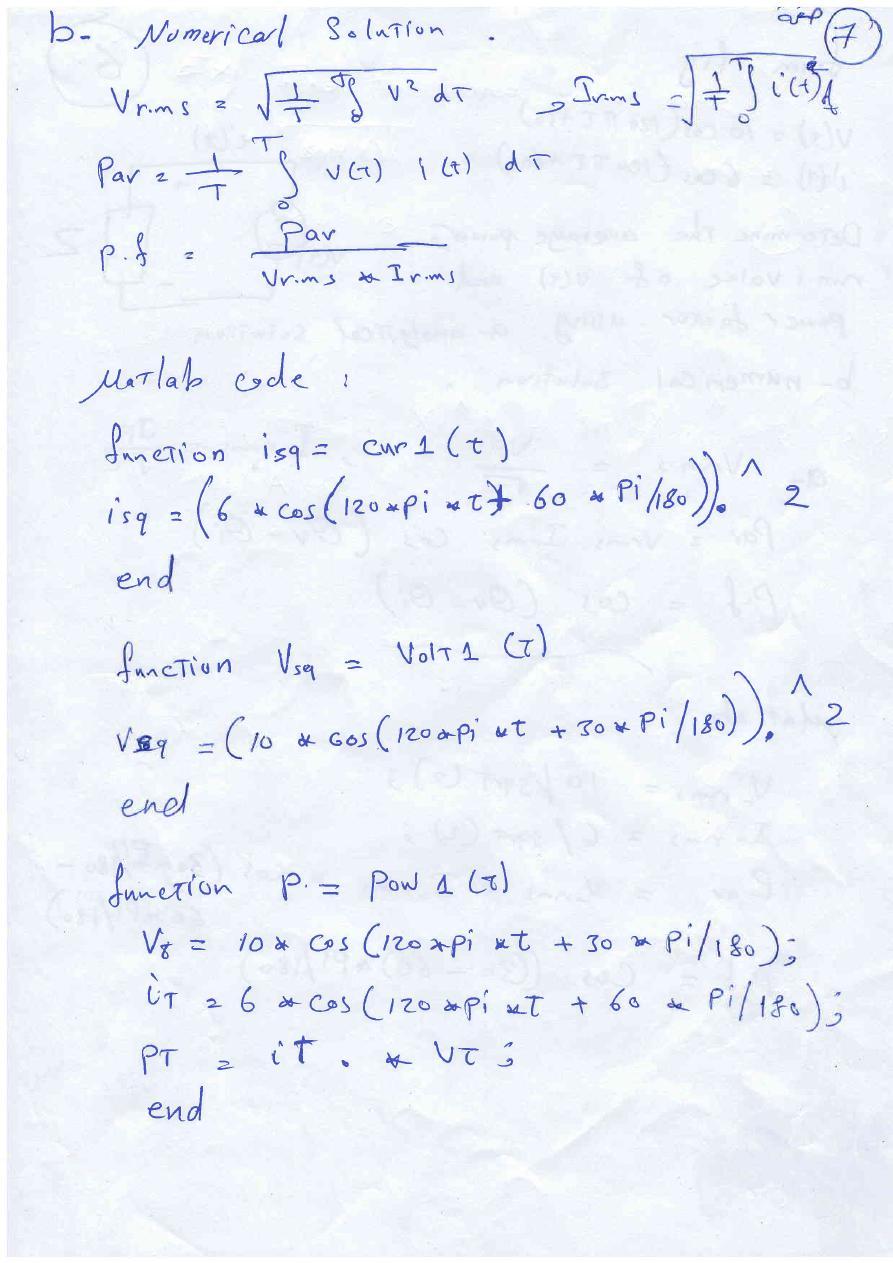 7
b- Numerical Solution .
Vr.ms = √(1/T ∫₀ᵀ V² dT) , Ir.ms = √(1/T ∫₀ᵀ i(t)²
Par = 1/T ∫₀ᵀ v(t) i(t) dT
p.f = Par / Vr.ms * Ir.ms
MaTlab code :
function isq = cur1(t)
isq = (6 * cos(120*pi*t + 60 * pi/180)).^2
end
function Vsq = VolT1 (T)
Vsq = (10 * cos(120*pi*t + 30*pi/180)).^2
end
function P. = Pow1(t)
Vt = 10* cos(120*pi*t + 30*pi/180);
iT = 6 * cos(120*pi*t + 60 * pi/180);
PT = iT .* VT ;
end